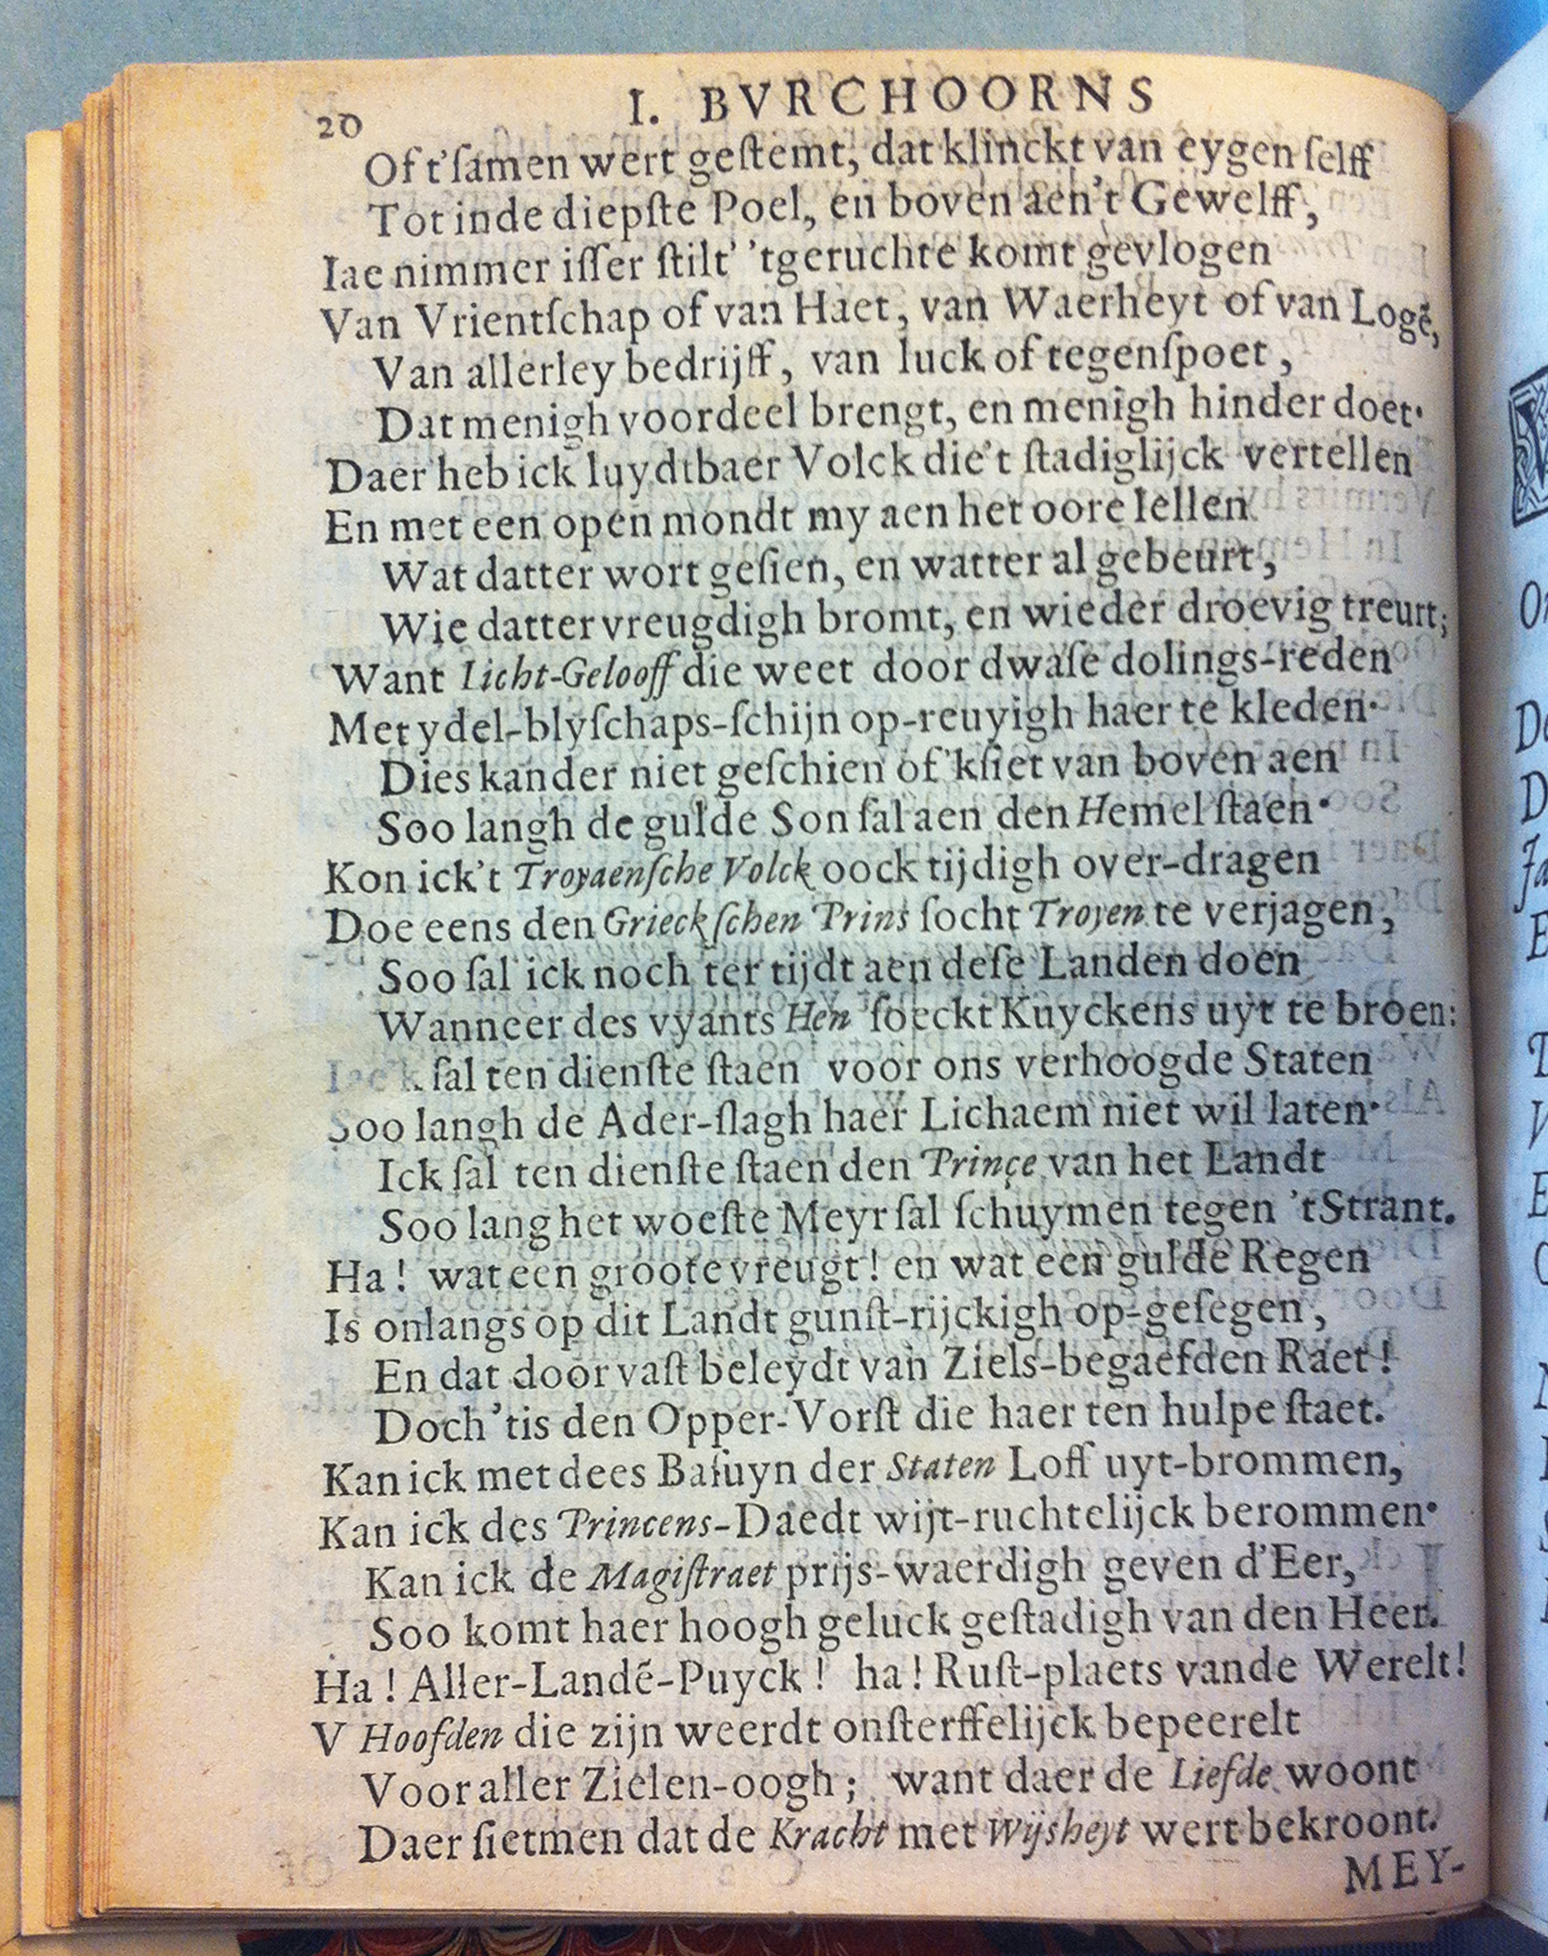 20
I. BVRCHOORNS
Of t'ſamen wert geſtemt, dat klinckt van eygen ſelff
Tot inde diepſte Poel, en boven aen't Gewelff,
Iae nimmer iſſer ſtilt' 'tgeruchte komt gevlogen
Van Vrientſchap of van Haet, van Waerheyt of van Logẽ,
Van allerley bedrijff, van luck of tegenſpoet,
Dat menigh voordeel brengt, en menigh hinder doet.
Daer heb ick luydtbaer Volck die't ſtadiglijck vertellen
En met een open mondt my aen het oore lellen
Wat datter wort geſien, en watter al gebeurt,
Wie datter vreugdigh bromt, en wieder droevig treurt;
Want Licht-Gelooff die weet door dwaſe dolings-reden
Met ydel-blyſchaps-ſchijn op-reuyigh haer te kleden.
Dies kander niet geſchien of 'kſiet van boven aen
Soo langh de gulde Son ſal aen den Hemel ſtaen.
Kon ick't Troyaenſche Volck oock tijdigh over-dragen
Doe eens den Grieckſchen Prins ſocht Troyen te verjagen,
Soo ſal ick noch ter tijdt aen deſe Landen doen
Wanneer des vyants Hen ſoeckt Kuyckens uyt te broen:
Iae'k ſal ten dienſte ſtaen voor ons verhoogde Staten
Soo langh de Ader-ſlagh haer Lichaem niet wil laten.
Ick ſal ten dienſte ſtaen den Prinçe van het Landt
Soo lang het woeſte Meyr ſal ſchuymen tegen 't Strant.
Ha! wat een groote vreugt! en wat een gulde Regen
Is onlangs op dit Landt gunſt-rijckigh op-geſegen,
En dat door vaſt beleydt van Ziels-begaefden Raet!
Doch 'tis den Opper-Vorſt die haer ten hulpe ſtaet.
Kan ick met dees Baſuyn der Staten Loff uyt-brommen,
Kan ick des Princens-Daedt wijt-ruchtelijck berommen.
Kan ick de Magiſtraet prijs-waerdigh geven d'Eer,
Soo komt haer hoogh geluck geſtadigh van den Heer.
Ha! Aller-Landẽ-Puyck! ha! Ruſt-plaets vande Werelt!
V Hoofden die zijn weerdt onſterffelijck bepeerelt
Voor aller Zielen-oogh; want daer de Liefde woont
Daer ſietmen dat de Kracht met Wijsheyt wert bekroont.
MEY-